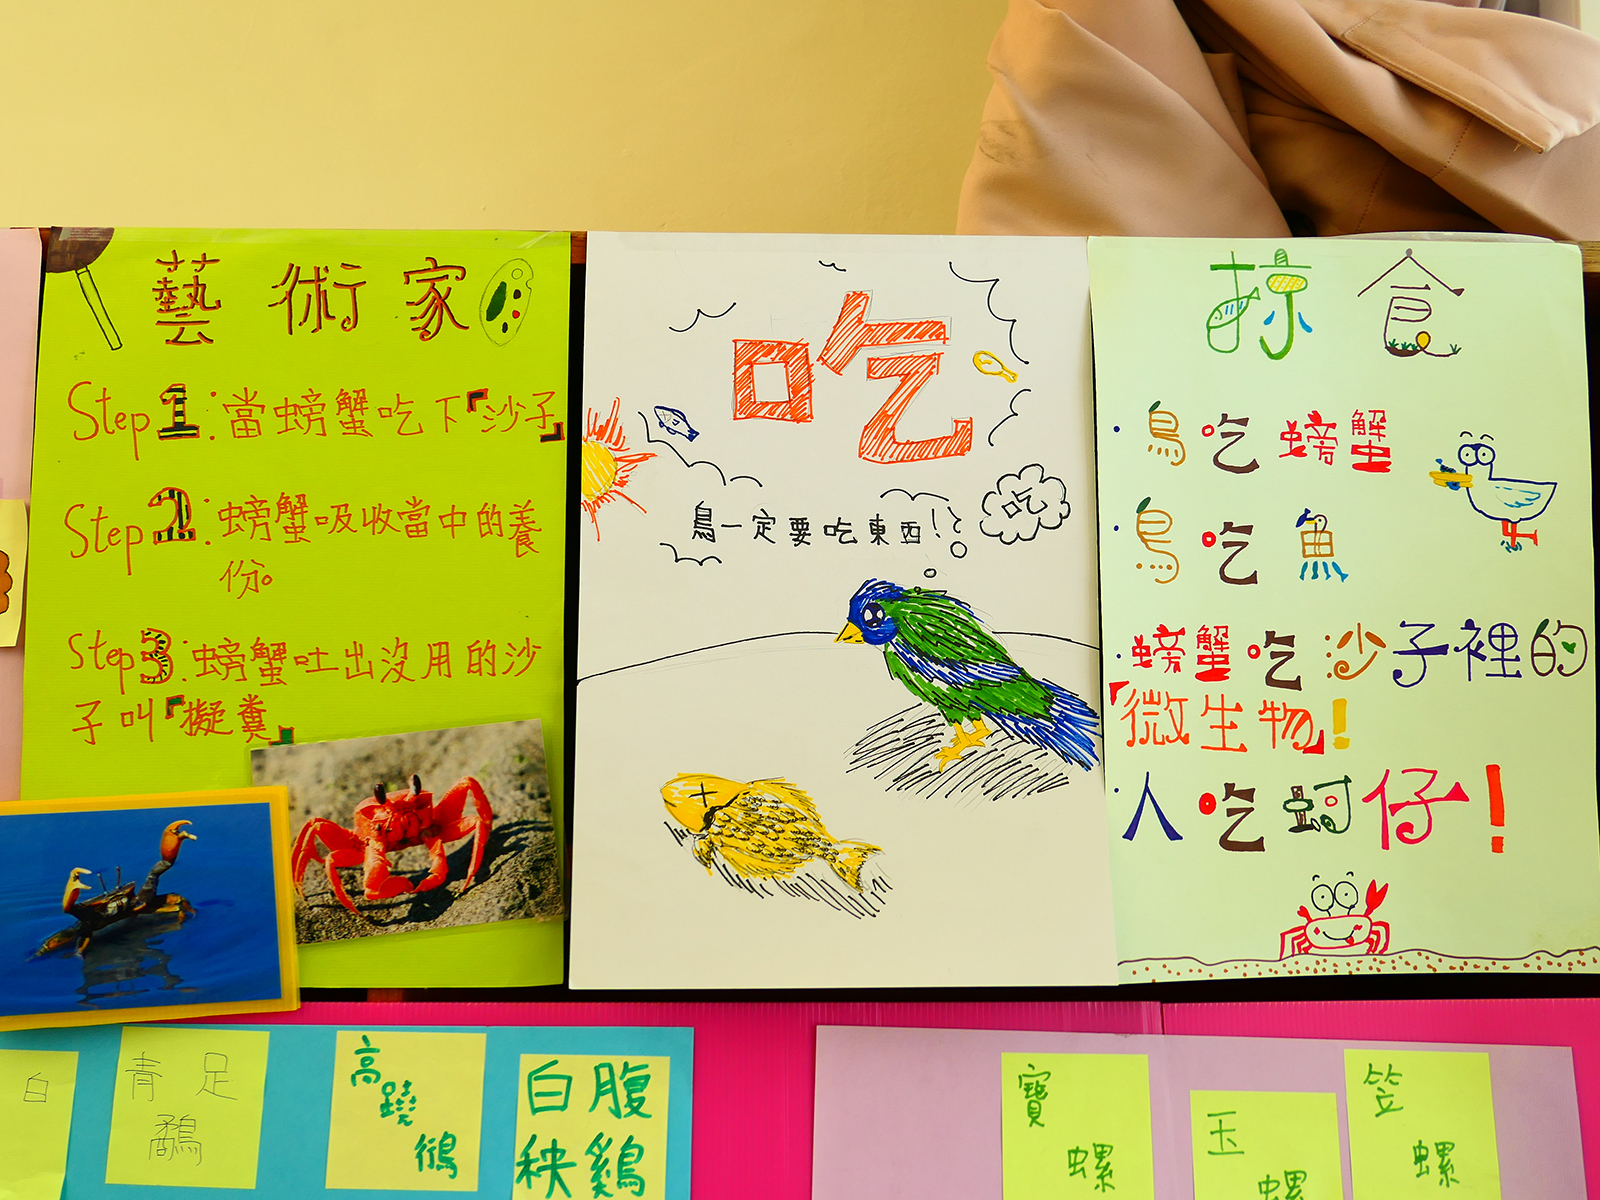 藝術家
Step 1:當螃蟹吃下『沙子』
Step 2:螃蟹吸收當中的養
份。
Step 3:螃蟹吐出沒用的沙
子叫『擬糞』
吃
鳥一定要吃東西!?
吃
掠食
·鳥吃螃蟹
·鳥吃魚
·螃蟹吃沙子裡的
『微生物』!
人吃蚵仔!
白
青足
鷸
高
蹺
鴴
白腹
秧雞
寶
螺
玉
螺
笠
螺